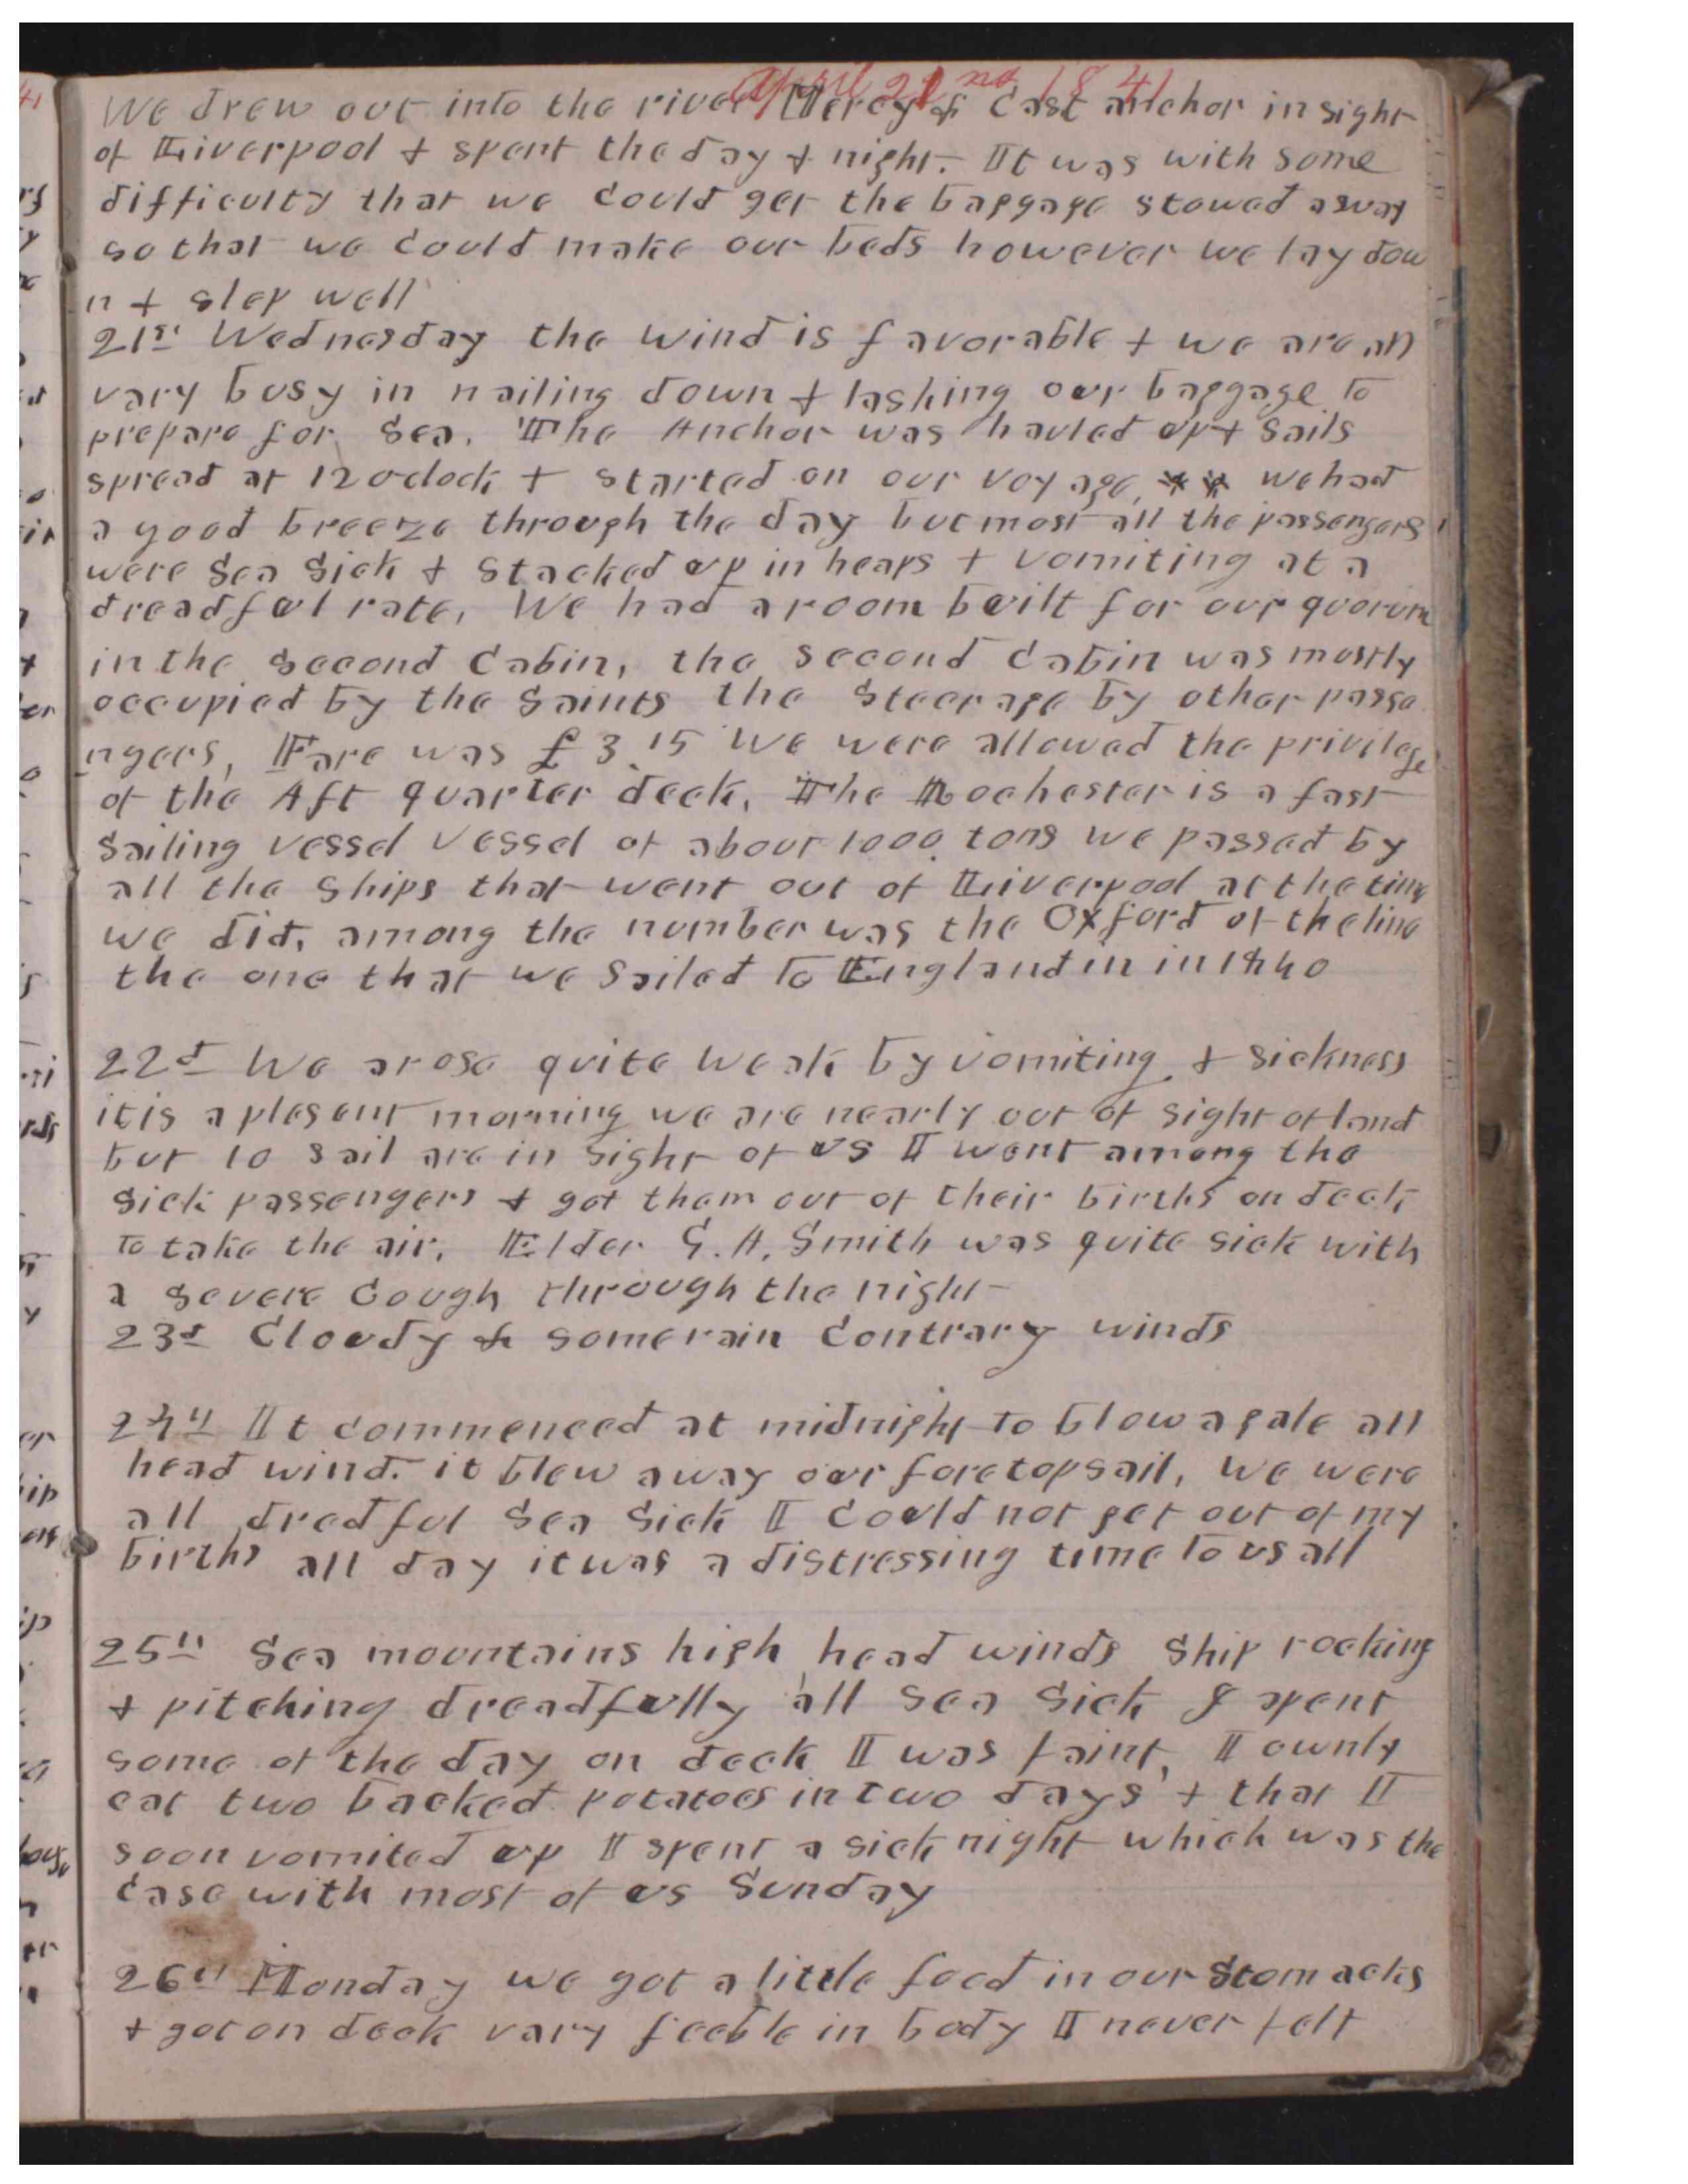 April 21 nd 1841
We drew out into the river Mercy & Cast anchor in sight
of Liverpool & spent the day & night. It was with some
difficulty that we could get the baggage stowed away
so that we could make our beds however we lay dow
n & slep well
21st Wednesday the wind is favorable & we are all
vary busy in nailing down & lashing our baggage to
prepare for Sea. The Anchor was hauled up & Sails
spread at 12 oclock & started on our voyage, ** we had
a good breeze through the day but most all the passengers
were Sea Sick & Stacked up in heaps & vomiting at a
dreadful rate, We had a room built for our quorum
in the second Cabin, the second cabin was mostly
occupied by the Saints the Steerage by other passe
ngers, Fare was £3.15 We were allowed the privilege
of the Aft quarter deck, The Rochester is a fast
sailing vessel vessel of about 1000 tons we passed by
all the ships that went out of Liverpool at the time
we did, among the number was the Oxford of the line
the one that we Sailed to England in in 1840
22d We arose quite weak by vomiting & sickness
it is a plesent morning we are nearly out of sight of land
but 10 sail are in sight of us I went among the
sick passengers & got them out of their births on deck
to take the air, Elder G. A. Smith was quite sick with
a severe cough through the night
23d Cloudy & some rain contrary winds
24th It commenced at midnight to blow a gale all
head wind. it blew away our foretopsail, we were
all dredful Sea Sick I could not get out of my
births all day it was a distressing time to us all
25th Sea mountains high head winds Ship rocking
& pitching dreadfully all sea sick I spent
some of the day on deck I was faint, I ownly
eat two backed potatoes in two days & that I
soon vomited up I spent a sick night which was the
case with most of us Sunday
26th Monday we got a little food in our Stomacks
& got on deck vary feeble in body I never felt